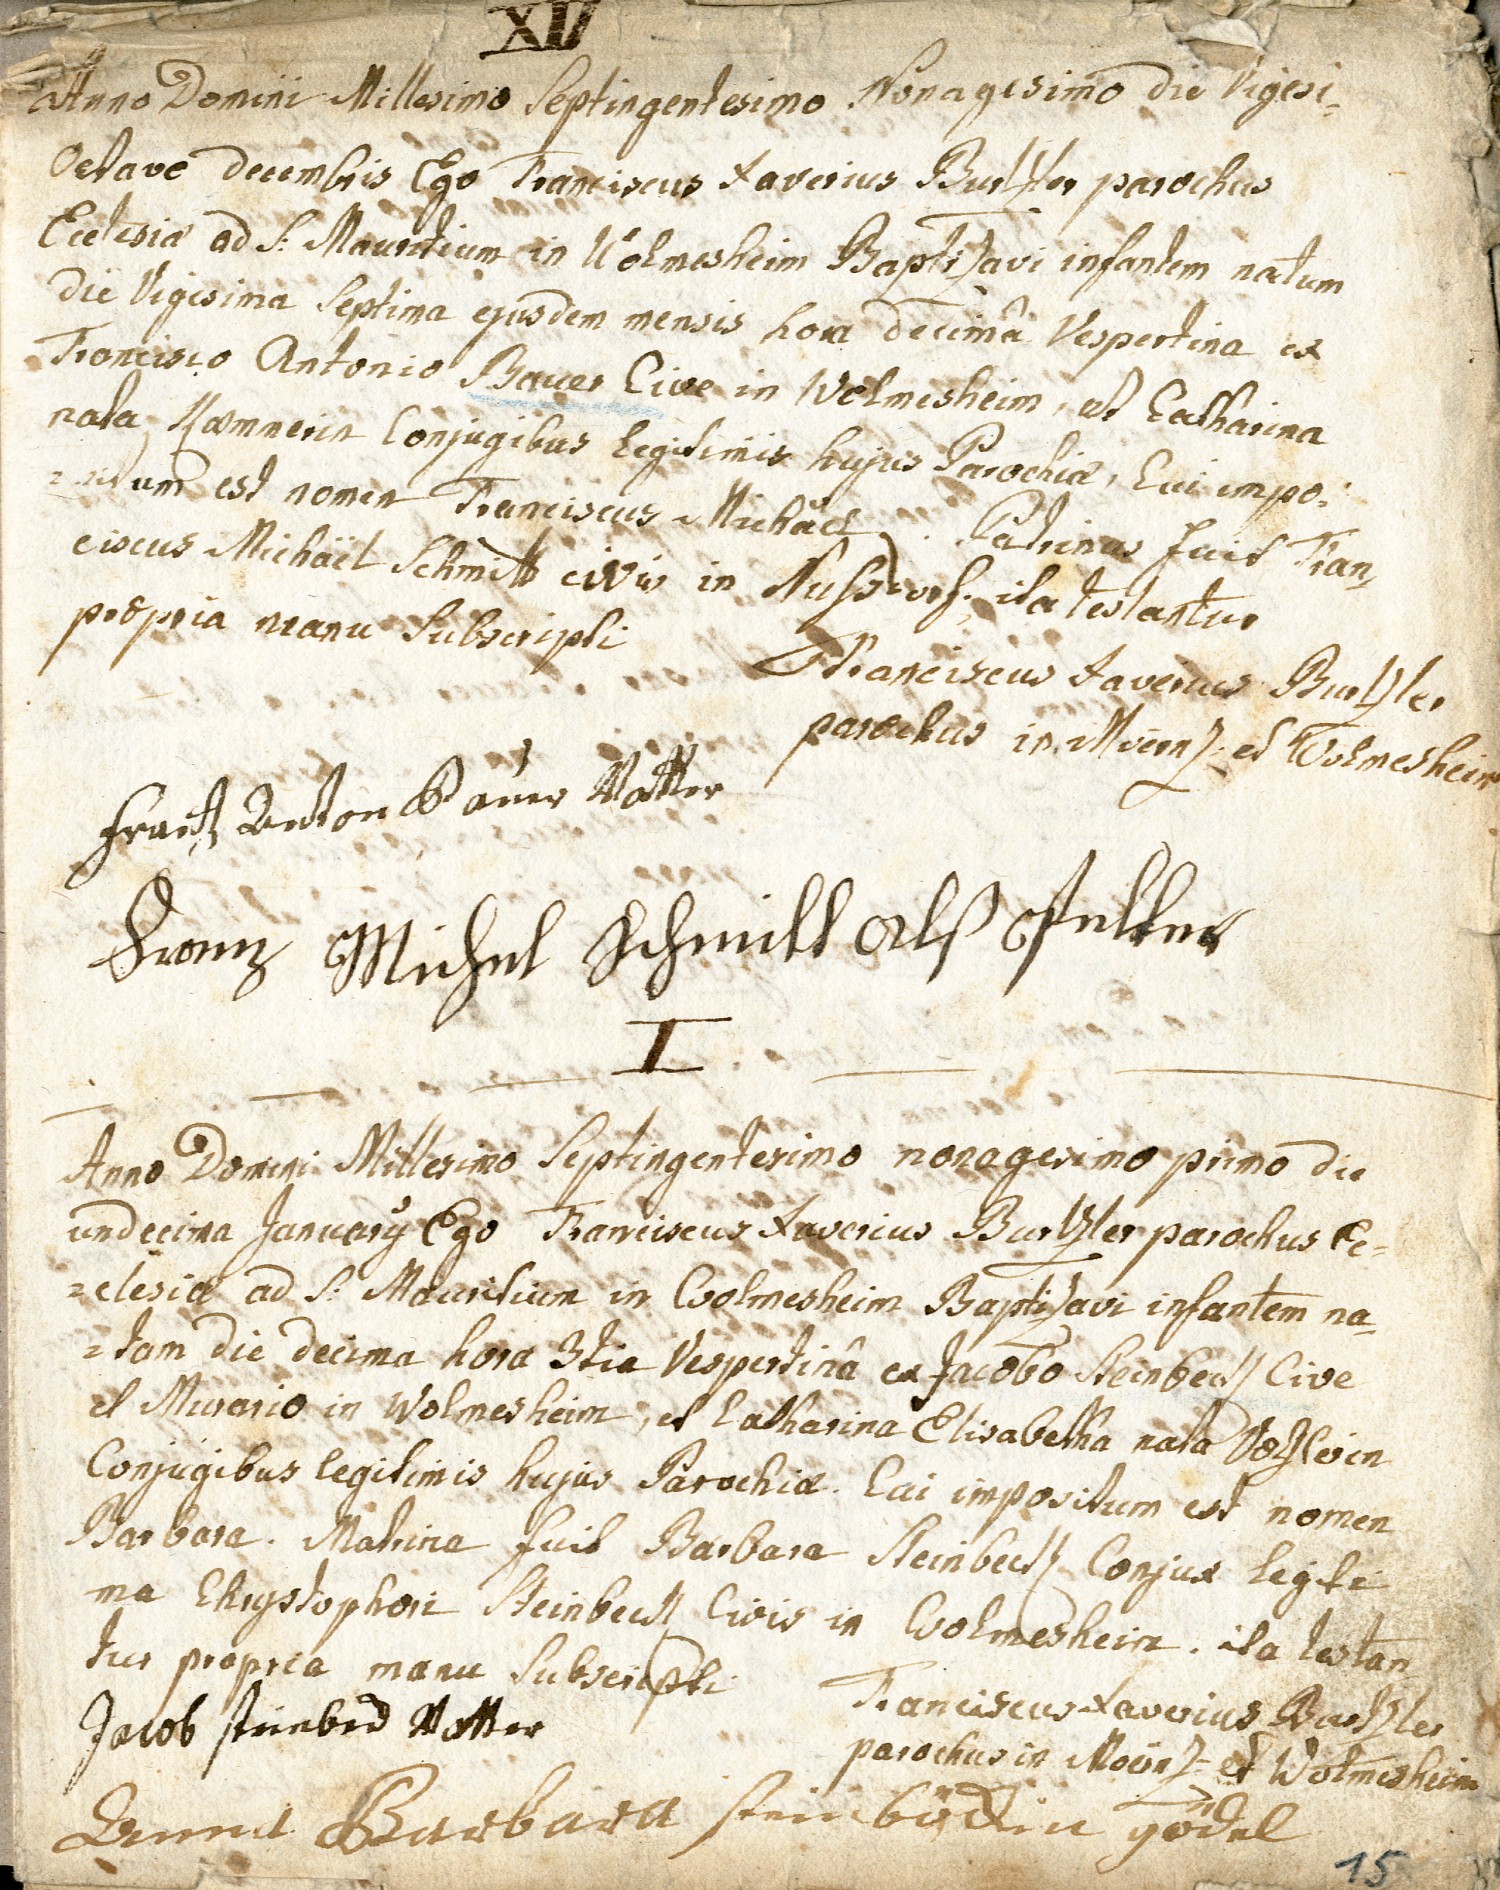 XII
Anno Domini Millesimo Septingentesimo Nonagesimo die Vigesi-
Octavo decembris Ego Franciscus Xaverius Burtzler parochus
Ecclesiæ ad S: Mauritium in Wolmesheim Baptizavi infantem natum
die Vigesima Septima ejusdem mensis hora decimâ Vespertina ex
Francisco Antonio Bauer Cive in Wolmesheim, et Catharina
nata Conjugibus legitimis hujus Parochiæ, Cui impo:
um est nomen Franciscus Michäel. Patrinus fuit Fran,
ciscus Michäel Schmitt civis in Nussdorf; ita testantur
propria manu Subscripti
Franciscus Xaverius Burtzler
parochus in et Wolmesheim
Frantz Anton Bauer Vatter
Franz Michel Schmitt alß
I
Anno Domini Millesimo Septingentesimo nonagesimo primo die
undecima Januarÿ Ego Franciscus Xaverius Burtzler parochus Ec=
=clesiæ ad S: Mauritium in Wolmesheim Baptizavi infantem na=
=tam die decima hora 3tia Vespertinâ ex Jacobo Steinbeck Cive
et Murario in Wolmesheim, et Catharina Elisabetha nata
Conjugibus legitimis hujus Parochiæ. Cui impositum est nomen
Barbara. Matrina fuit Barbara Steinbeck Conjux legiti
ma Chrystophori Steinbeck Civis in Wolmesheim. ita testan
tur propria manu Subscripti
Franciscus Xaverius Burtzler
parochus in et Wolmesheim
Jacob Vatter
Barbara steinböckin gödel
15